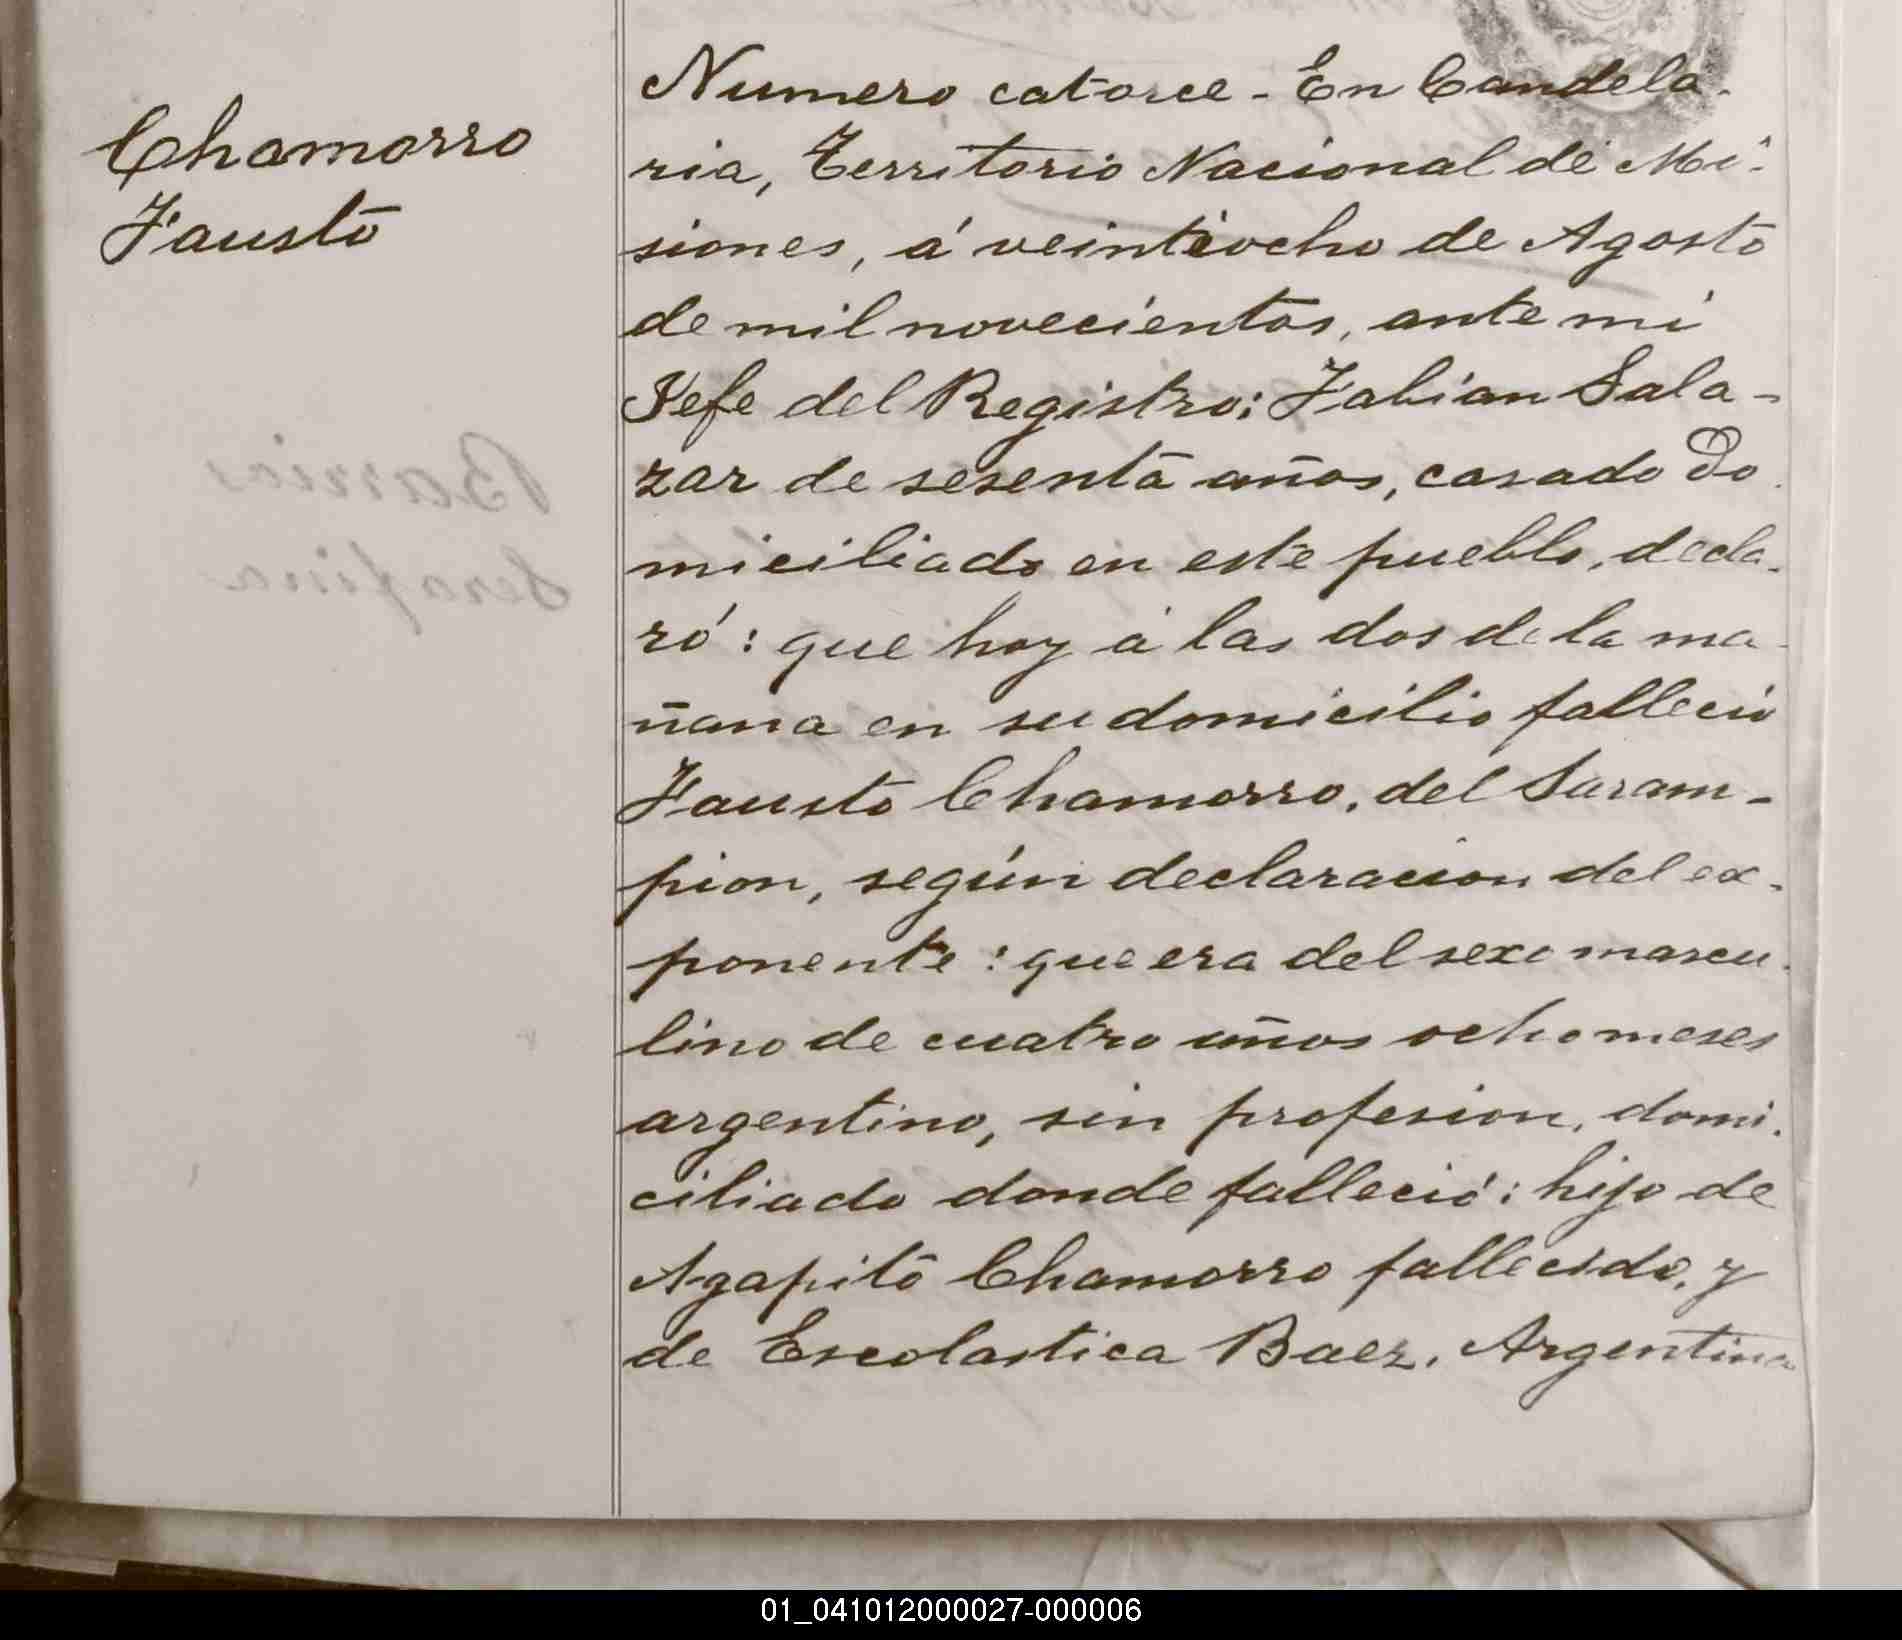 Chamorro
Fausto
Numero, catorce - En Candela-
ria, Territorio Nacional de Mi-
siones, á veintiocho de Agosto
de mil novecientos, ante mi
Jefe del Registro: Fabian Sala-
zar de sesenta años, casado Do
miciliado en este pueblo, decla-
ró: que hoy á las dos de la ma-
ñana en su domicilio falleció
Fausto Chamorro, del Saram-
pion, según declaracion del ex-
ponente: que era del sexo mascu-
lino de cuatro años ocho meses
argentino, sin profesion, domi-
ciliado donde falleció: hijo de
Agapito Chamorro fallecido, y
de Escolastica Baez, Argentina
Barrios
Serafina
01_041012000027-000006